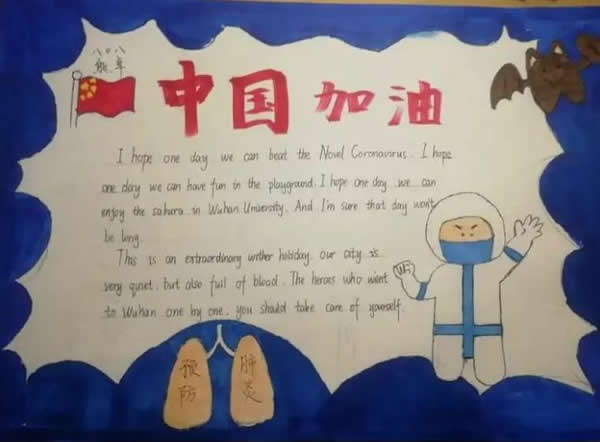 八〇八
中国加油
I hope one day we can beat the Novel Coronavirus. I hope
one day we can have fun in the playground. I hope one day we can
enjoy the sakura in Wuhan University. And I'm sure that day won't
be long.
This is an extraordinary winter holiday. our city is
very quiet, but also full of blood. The heroes who went
to Wuhan one by one, you should take care of yourself.
预防
肺炎